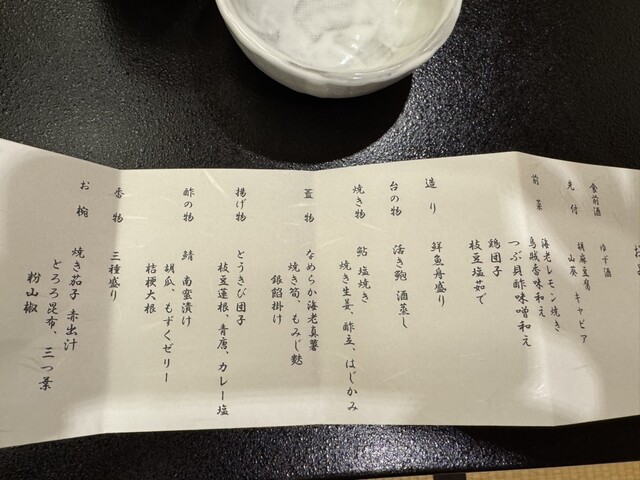 食前酒
ゆず酒
先付
胡麻豆腐 キャビア
山葵
前菜
海老レモン焼き
烏賊香味和え
つぶ貝酢味噌和え
鶏団子
枝豆塩茹で
造り
鮮魚舟盛り
台の物
活き鮑 酒蒸し
焼き物
鮎 塩焼き
焼き生姜、酢立、はじかみ
蓋物
なめらか海老真薯
焼き筍、もみじ麩
銀餡掛け
揚げ物
とうきび団子
枝豆蓮根、青唐、カレー塩
酢の物
鯖 南蛮漬け
胡瓜、もずくゼリー
桔梗大根
香物
三種盛り
お椀
焼き茄子 赤出汁
とろろ昆布、三つ葉
粉山椒